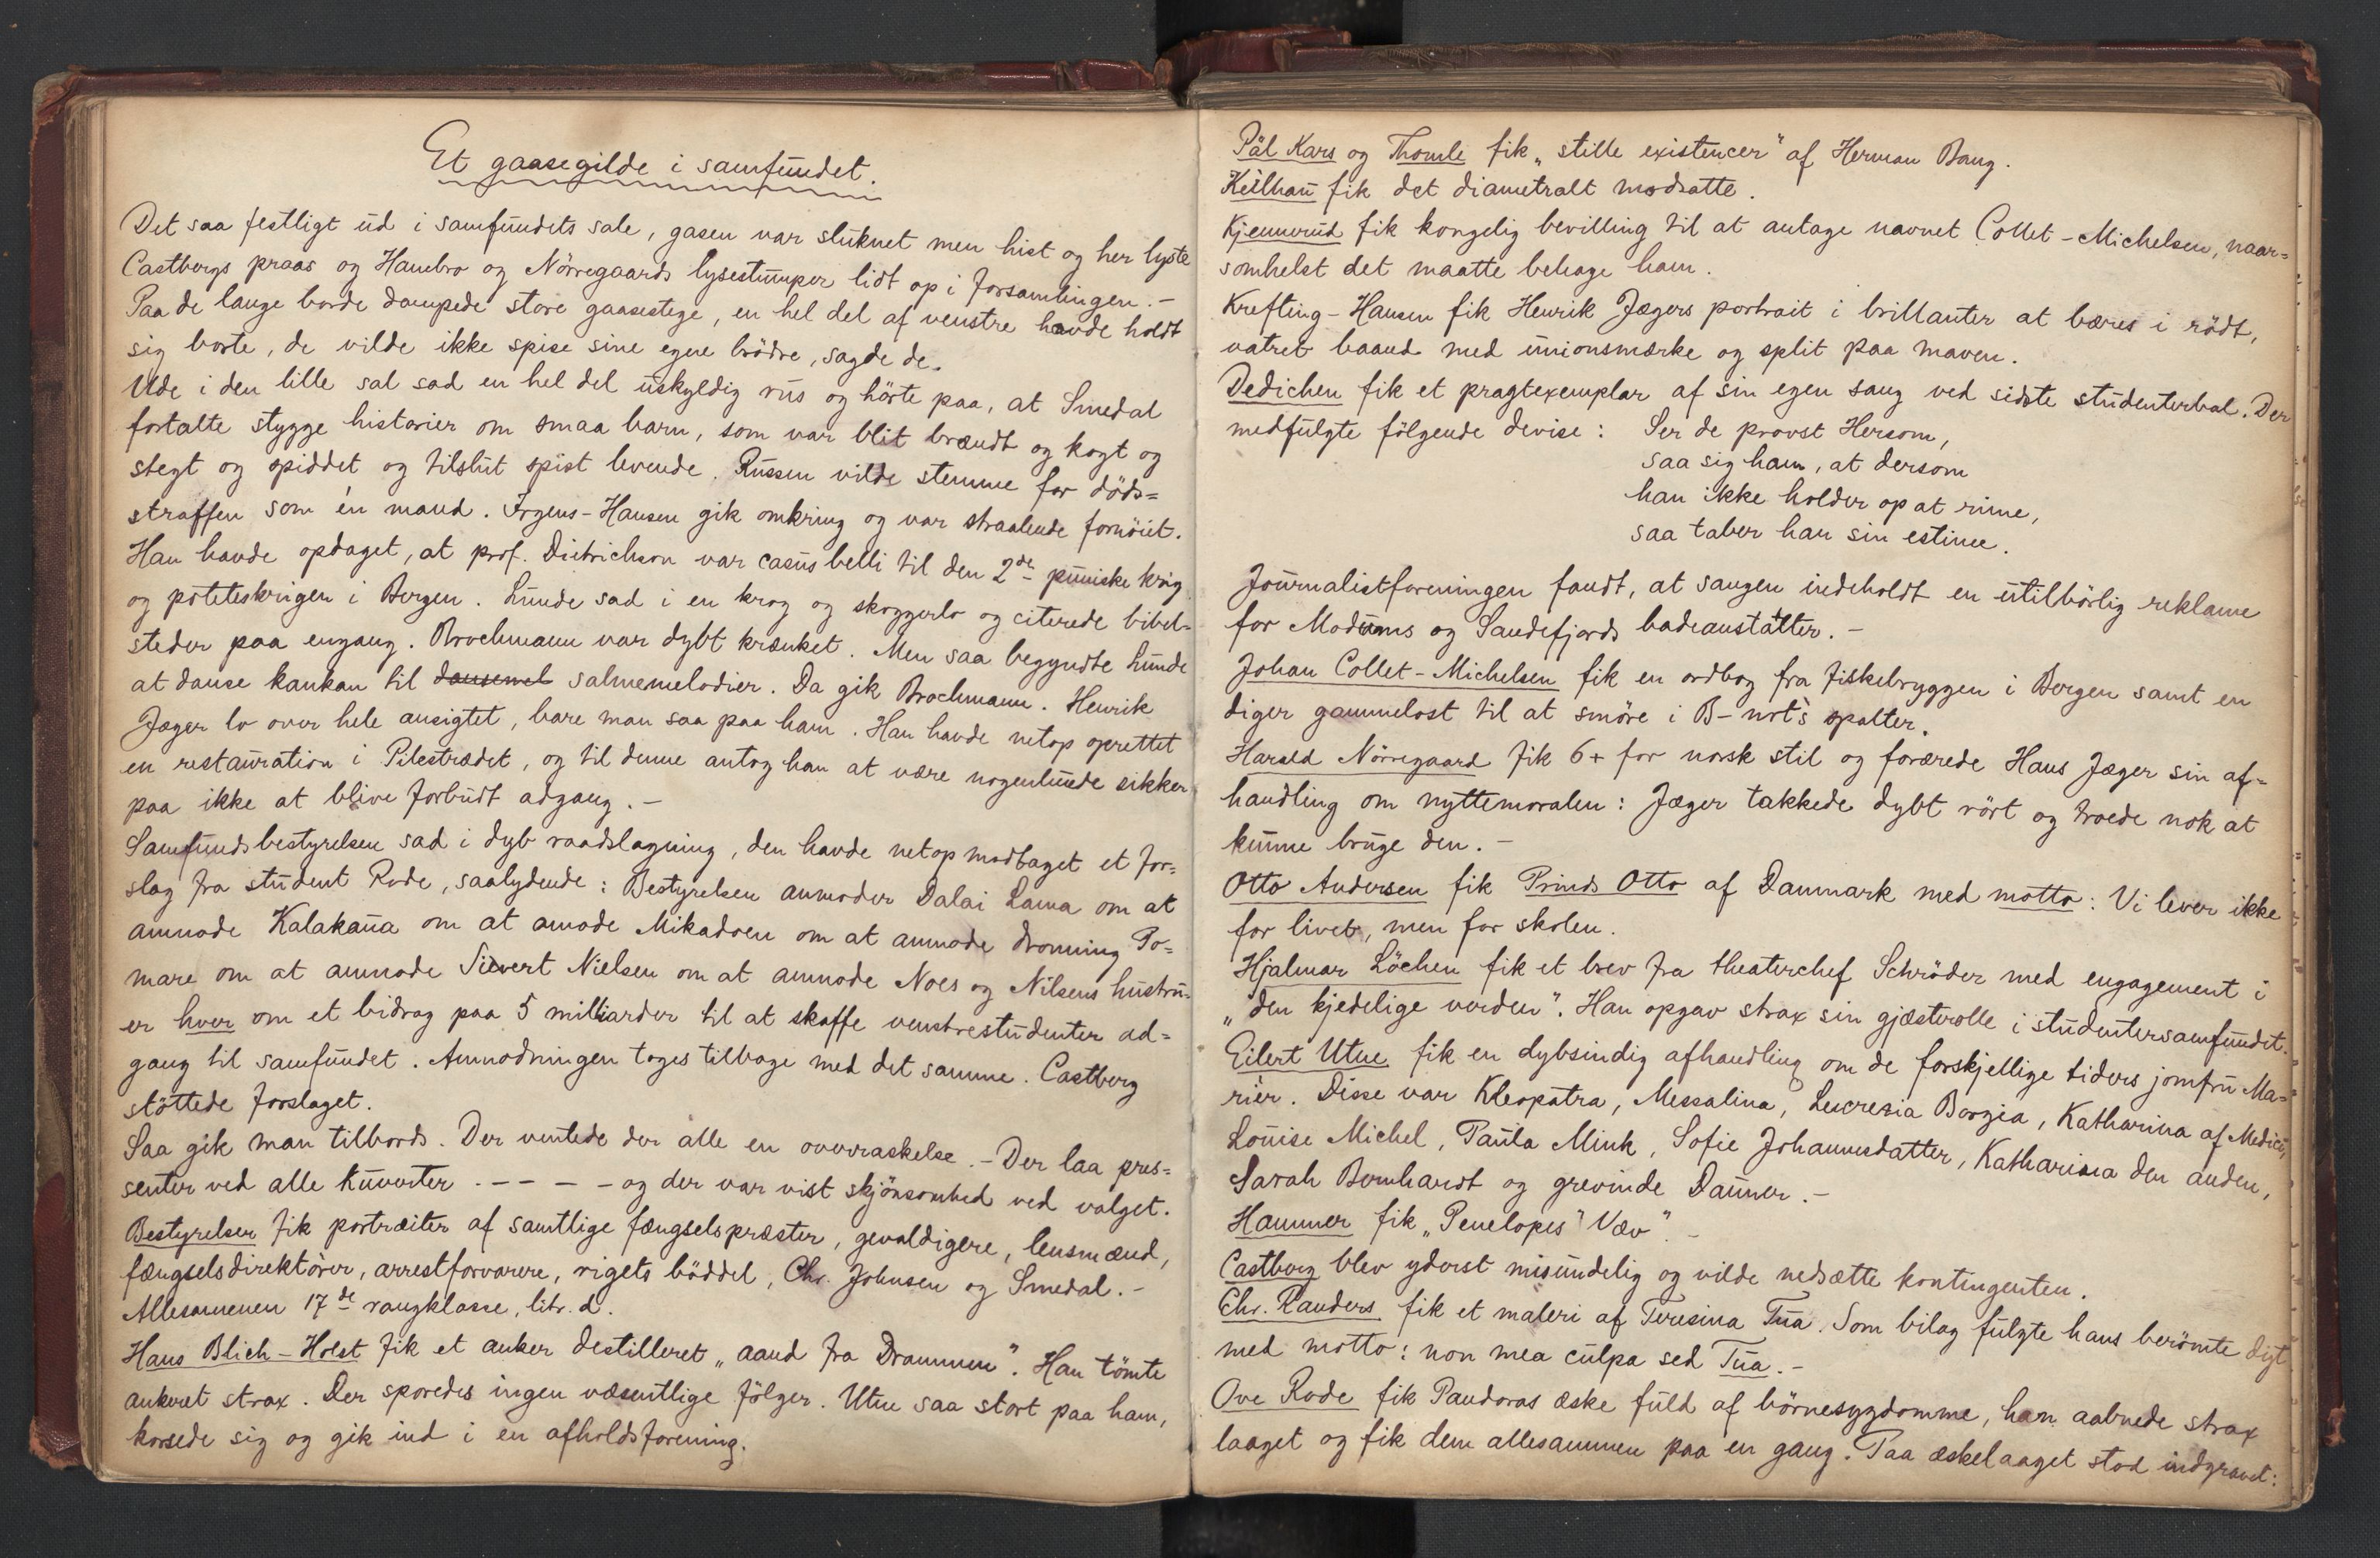 Et gaasegilde i samfundet.
Det saa festligt ud i samfundets sale, gasen var sluknet men hist og her lyste
Castbergs praas og Hambro og Nörregaards lysestumper lidt op i forsamlingen. -
Paa de lange borde dampede store gaasestege, en hel del af venstre havde holdt
sig borte, de vilde ikke spise sine egne brödre, sagde de.
Ude i den lille sal sad en hel del uskyldig rus og hörte paa, at Smedal
fortalte stygge historier om smaa barn, som var blit brændt og kogt og
stegt og spiddet og tilslut spist levende. Russen vilde stemme for döds=
straffen som én mand. Irgens-Hansen gik omkring og var straalende fornöiet.
Han havde opdaget, at prof. Dietrichson var casus belli til den 2de puniske krig
og poteteskrigen i Bergen. Lunde sad i en krog og skoggerlo og citerede bibel-
steder paa engang. Brochmann var dybt krænket. Men saa begyndte Lunde
at danse kankan til dansemel salmemelodier. Da gik Brochmann. Henrik
Jæger lo over hele ansigtet, bare man saa paa ham. Han havde netop oprettet
en restauration i Pilestrædet, og til denne antog han at være nogenlunde sikker
paa ikke at blive forbudt adgang. -
Samfundsbestyrelsen sad i dyb raadslagning, den havde netop modtaget et for=
slag fra student Rode, saalydende: Bestyrelsen anmoder Dalai Lama om at
anmode Kalakaua om at amode Mikadoen om at anmode dronning Po=
mare om at anmode Sievert Nielsen om at anmode Noes og Nilsens hustru-
er hver om et bidrag paa 5 milliarder til at skaffe venstrestudenter ad=
gang til samfundet. Anmodningen toges tilbage med det samme. Castberg
stöttede forslaget.
Saa gik man tilbords. Der ventede der alle en overraskelse. - Der laa pres=
senter ved alle kuverter. - - - - og der var vist skjönsomhed ved valget.
Bestyrelsen fik portræiter af samtlige fængselspræster, gevaldigere, lensmænd,
fængselsdirektörer, arrestforvarere, rigets böddel, Chr. Johnsen og Smedal. -
Allesammen 17de rangklasse, litr. d.
Hans Blich-Holst fik et anker destilleret „aand fra Drammen". Han tömte
ankeret strax. Der sporedes ingen væsentlige fölger. Utne saa stort paa ham,
korsede sig og gik ind i en afholdsforening.
Pål Kars og Thomle fik „stille existencer" af Herman Bang.
Keilhau fik det diametralt modsatte.
Kjennerud fik kongelig bevilling til at antage navnet Collet-Michelsen, naar=
somhelst det maatte behage ham.
Krefting-Hansen fik Henrik Jægers portrait i brillanter at bæres i rödt,
vatret baand med unionsmærke og split paa maven.
Dedichen fik et pragtexemplar af sin egen sang ved sidste studenterbal. Der
medfulgte fölgende devise: Ser de provst Hersom,
saa sig ham, at dersom
han ikke holder op at rime,
saa taber han sin estime.
Journalistforeningen fandt, at sangen indeholdt en utilbörlig reklame
for Modums og Sandefjords badeanstalter. -
Johan Collet-Michelsen fik en ordbog fra fiskebryggen i Bergen samt en
diger gammelost til at smöre i B-nots spalter.
Harald Nörregaard fik 6+ for norsk stil og forærede Hans Jæger sin af=
handling om nyttemoralen: Jæger takkede dybt rört og troede nok at
kunne bruge den. -
Otto Andersen fik Prinds Otto af Danmark med motto: Vi lever ikke
for livet, men for skolen.
Hjalmar Löchen fik et brev fra theaterchef Schröder med engagement i
„den kjedelige verden". Han opgav strax sin gjæsterolle i studentersamfundet.
Eilert Utne fik en dybsindig afhandling om de forskjellige tiders jomfru Ma=
rier. Disse var Kleopatra, Messalina, Lucresia Borgia, Katharina af Medici,
Louise Michel, Paula Mink, Sofie Johannesdatter, Katharina den anden,
Sarah Bernhardt og grevinde Danner. -
Hammer fik „Penelopes" Væv". -
Castberg blev yderst misundelig og vilde nedsætte kontingenten.
Chr. Randers fik et maleri af Teresina Tua. Som bilag fulgte hans berömte digt
med motto: non mea culpa sed Tua. -
Ove Rode fik Pandoras æske fuld af börnesygdomme, han aabnede strax
laaget og fik dem allesammen paa en gang. Paa æskelaaget stod indgravet: